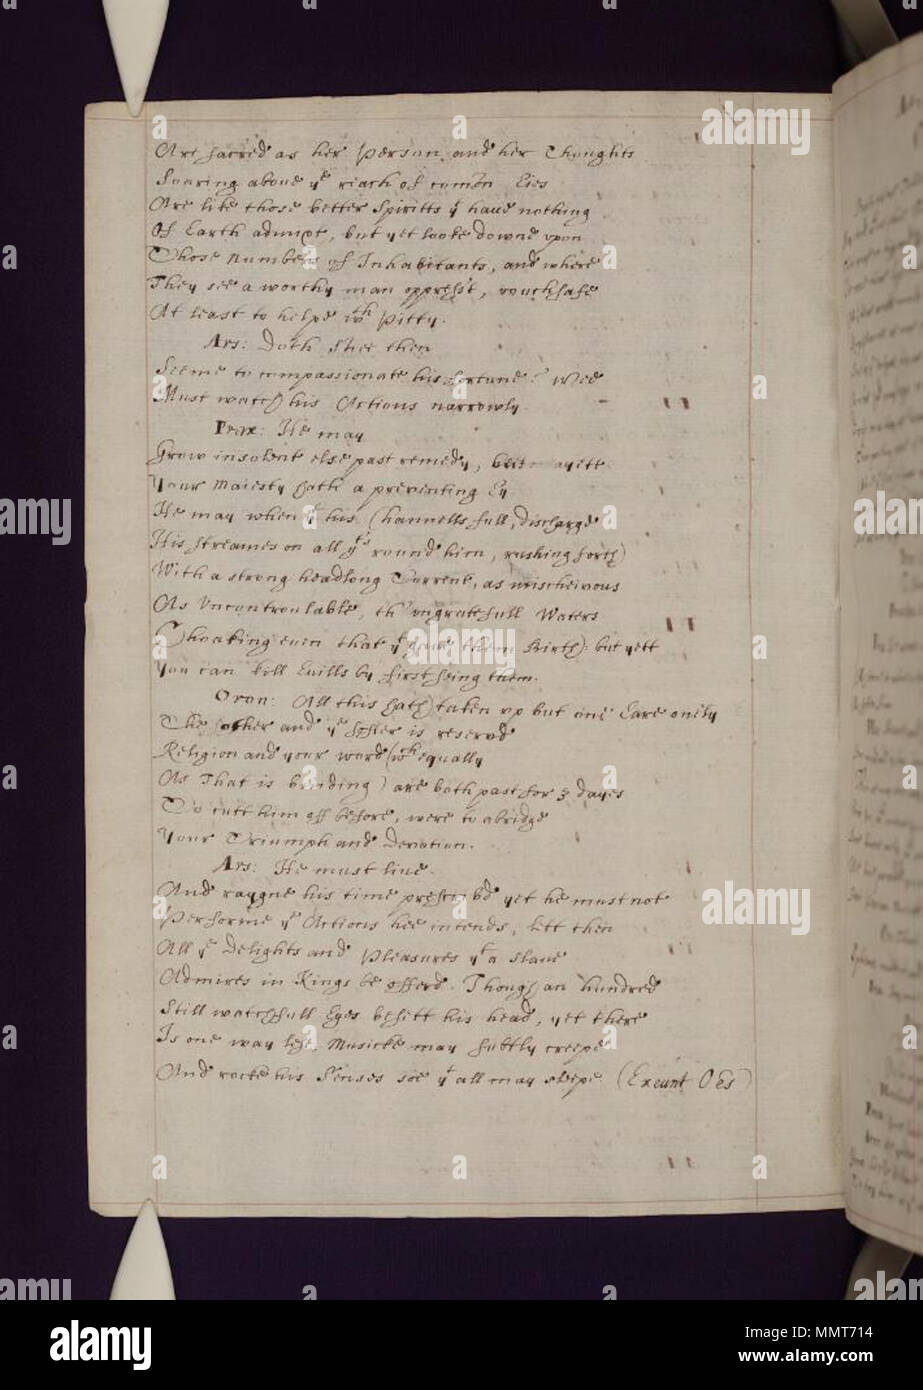 Are sacred as her Person, and her Thoughts
Soaring aboue yᵉ reach of com̄on Eies
Are like those better Spiritts yᵗ haue nothing
Of Earth admixt, but yet looke downe vpon
Those Numbers of Inhabitants, and where
They see a worthy man opprest, vouchsafe
At least to helpe wᵗʰ Pitty.
Ars: Doth Shee then
Seeme to compassionate his fortune? Wee
Must watch his Actions narrowly.
Prax: He may
Grow insolent else past remedy, but yett
Your Maiesty hath a preventing Ey
He may when yᵗ his Channells full, discharge
His streames on all yᵗˢ round him, rushing forth
With a strong headlong Current, as mischeivous
As Vncontroulable, th'vngratefull Waters
Choaking euen that yᵗ gaue them Birth: but yett
You can kill Euills by first seing them.
Oron: All this hath taken vp but one Eare onely
The other and yᵉ freer is reserv'd
Religion and your word (wᶜʰ equally
As That is binding) are both past for 3 dayes
To cutt him off before, were to abridge
Your Triumph and Devotion.
Ars: He must liue
And raygne his time prescrib'd yet he must not
Performe yᵉ Actions hee intends, lett then
All yᵉ Delights and Pleasures yᵗ a slaue
Admires in Kings be offerd. Though an hundred
Still watchfull Eyes besett his head, yet there
Is one way left, Musicke may subtly creepe
And rocke his Senses soe yᵗ all may sleepe. (Exeunt Oēs)
alamy
Image ID: MMT714
www.alamy.com